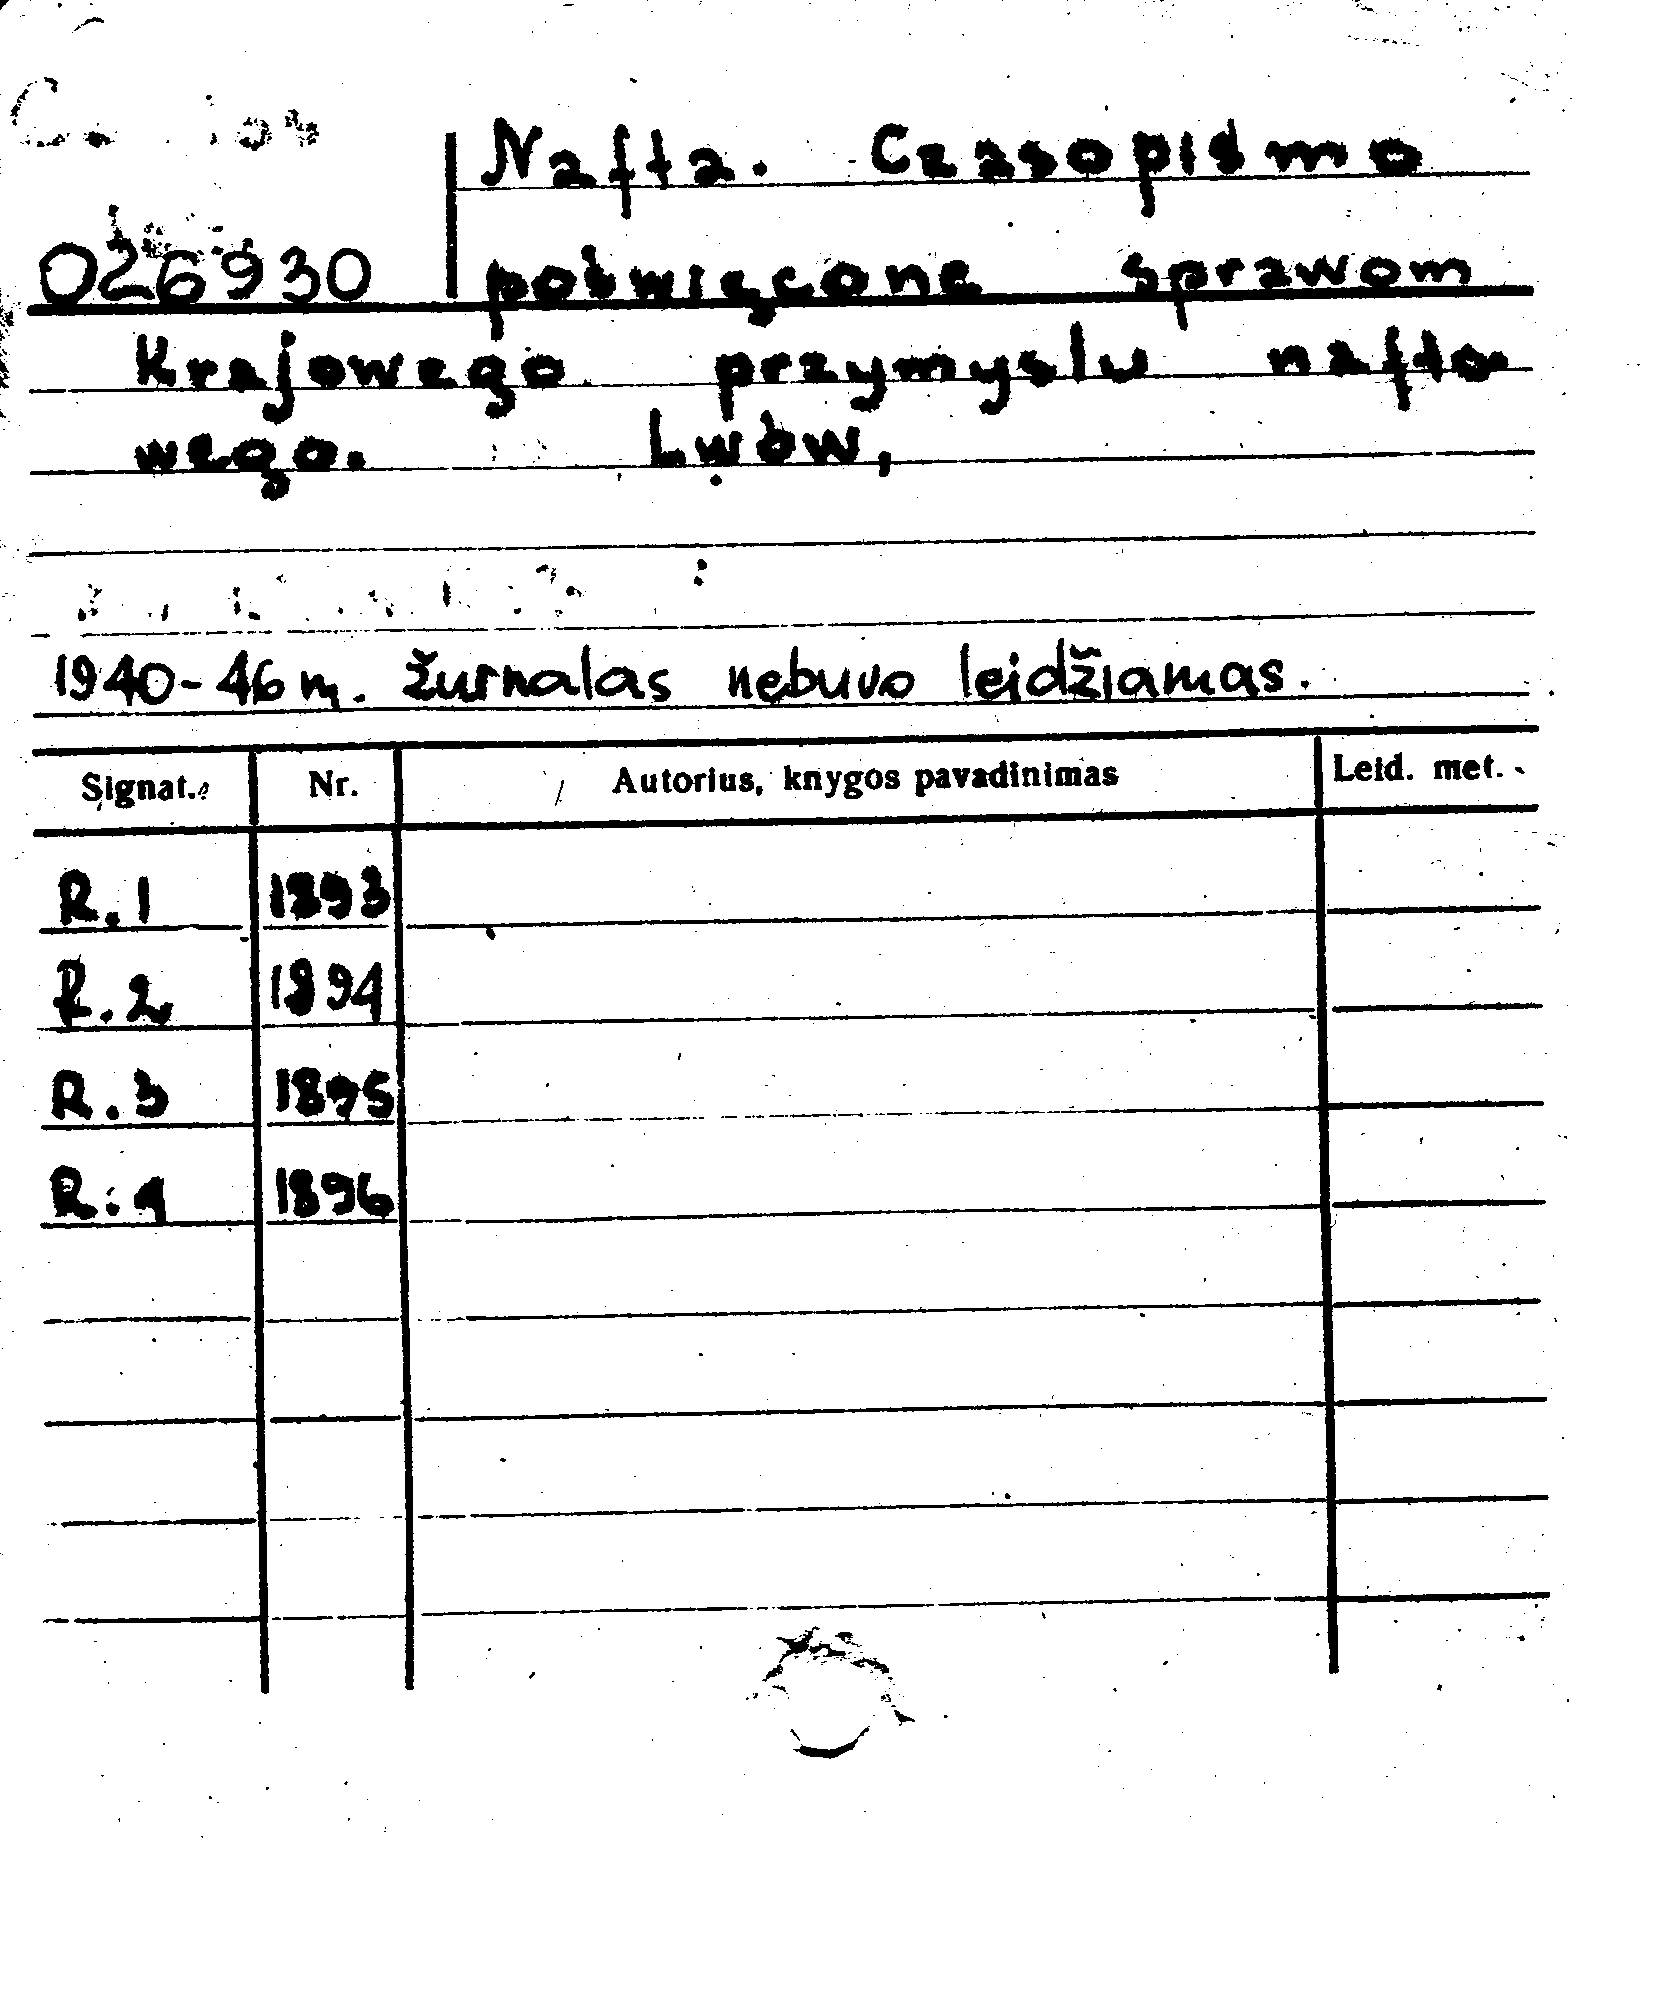 Nafta. Czasopismo
026930 poświęcone sprawom
Krajowego przymysłu nafto-
wego. Lwów,
1940-46 m. žurnalas nebuvo leidžiamas.
Signat. Nr. Autorius, knygos pavadinimas Leid. met.
R. 1 1893
R. 2 1894
R. 3 1895
R. 4 1896